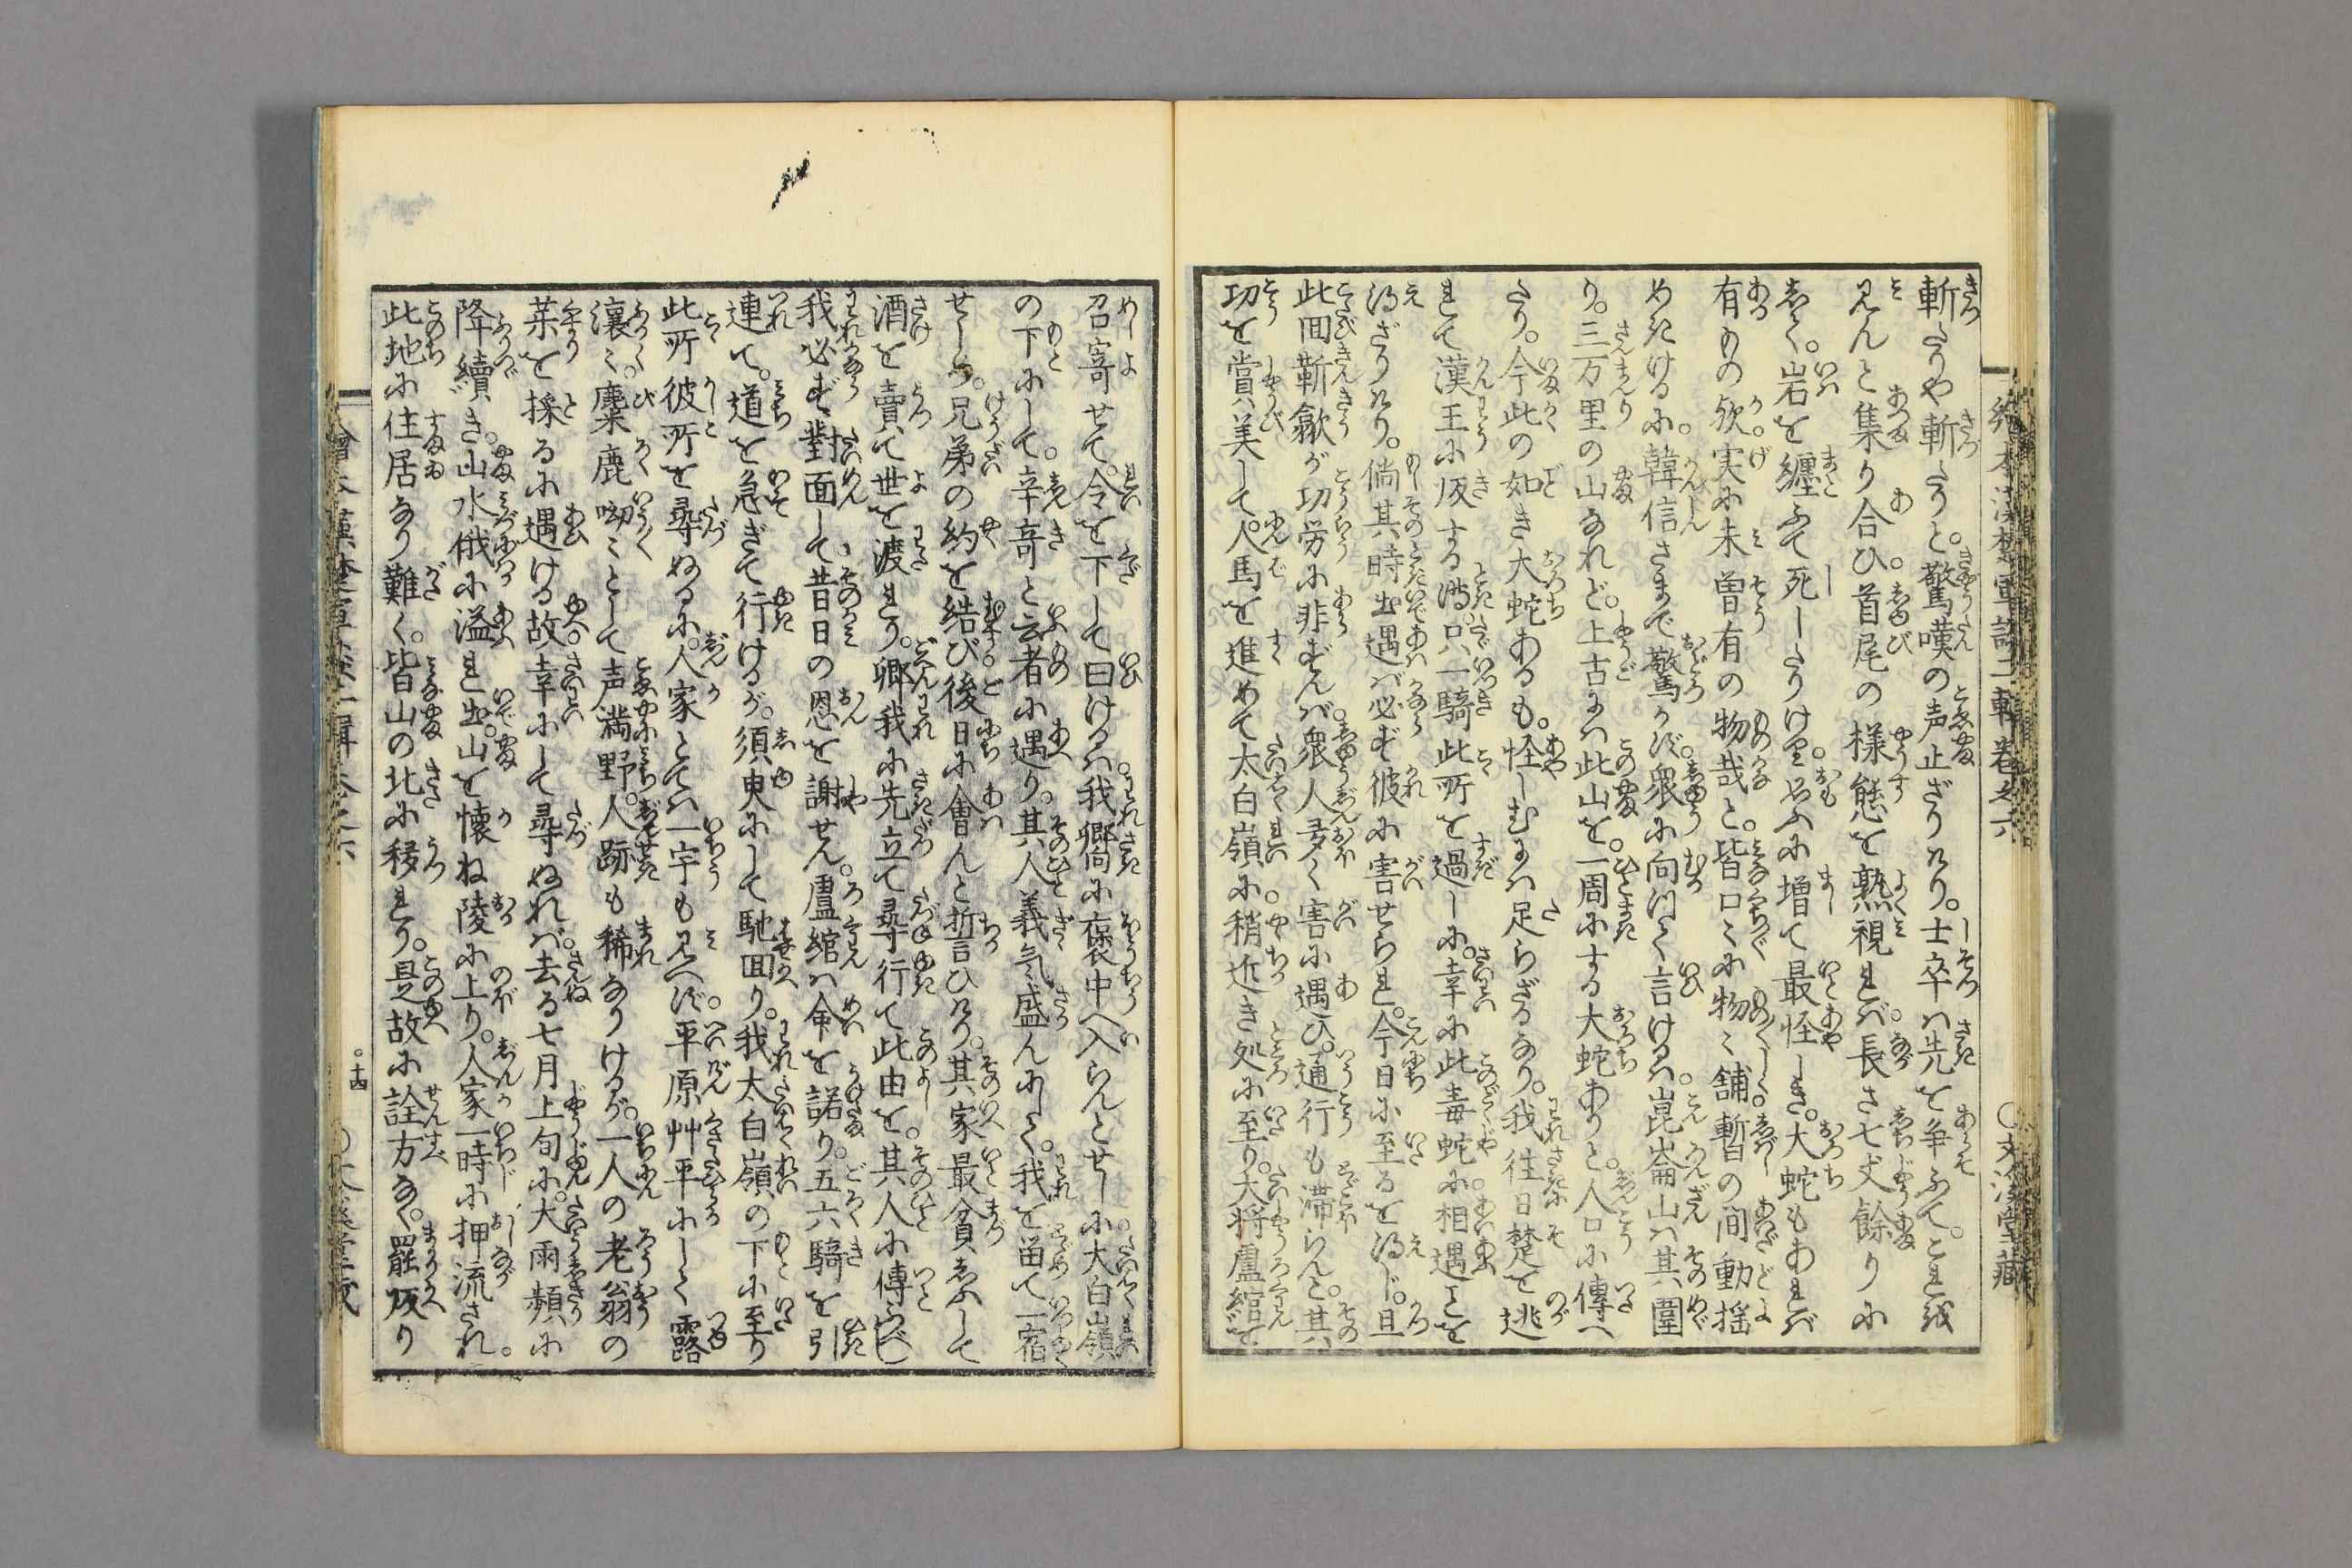 繪本漢楚軍談二輯卷之六
○文溪堂藏
斬たりや斬たりと。驚嘆の声止ざりけり。士卒ハ先を争ふて。これを
見んと集り合ひ。首尾の様態を熟視れバ。長さ七丈餘りに
して。岩を纏ふて死したりける。思ふに増て最怪しき。大蛇もあれバ
有ものか。実に未曽有の物哉と。皆口〻に物〻し。暫の間動揺
めきけるに。韓信さまで驚かず。衆に向ひて言けるハ。崑崙山ハ其圍
り。三万里の山なれど。上古にハ此山を。一周にする大蛇ありと。人口に傳へ
たり。今此の如き大蛇あるも。怪しむにハ足らざるなり。我往日楚を逃
れて漢王に皈する時。只一騎此所を過しに。幸に此毒蛇に相遇ことを
得ざりけり。倘其時出遇ハゞ必ず彼に害せられ。今日に至るを得じ。且
此回靳歙が功労に非ずんバ。衆人多く害に遇ひ。通行も滞らんと。其
功を賞美して。人馬を進めて太白嶺に。稍近き処に至り。大将盧綰を
召寄せて。令を下して曰けるハ。我郷に褒中へ入らんとせしに。大白嶺
の下にして。辛竒と云者に遇り。其人義気盛んにして。我を畄て一宿
せしめ。兄弟の約を結び。後日に會んと誓ひけり。其家最貧ふして
酒を賣て世を渡れり。卿我に先立て尋行て此由を。其人に傳ふべし
我必ず對面して。昔日の恩を謝せん。盧綰ハ命を諾り。五六騎を引
連て。道を急ぎて行けるが。須臾にして馳回り。我太白嶺の下に至り
此所彼所を尋ぬるに。人家とてハ一宇も見へず。平原艸平にして露
瀼〻。麋鹿呦〻として声満野。人跡も稀なりけるが。一人の老翁の
菜を採るに遇ける故。幸にして尋ぬれバ。去る七月上旬に。大雨頻に
降續き。山水俄に溢れ出。山を懐ね陵に上り。人家一時に押流され。
此地に住居なり難く。皆山の北に移れり。是故に詮方なく。罷皈り
繪本漢楚軍談二輯卷之六
○十四
○文溪堂藏